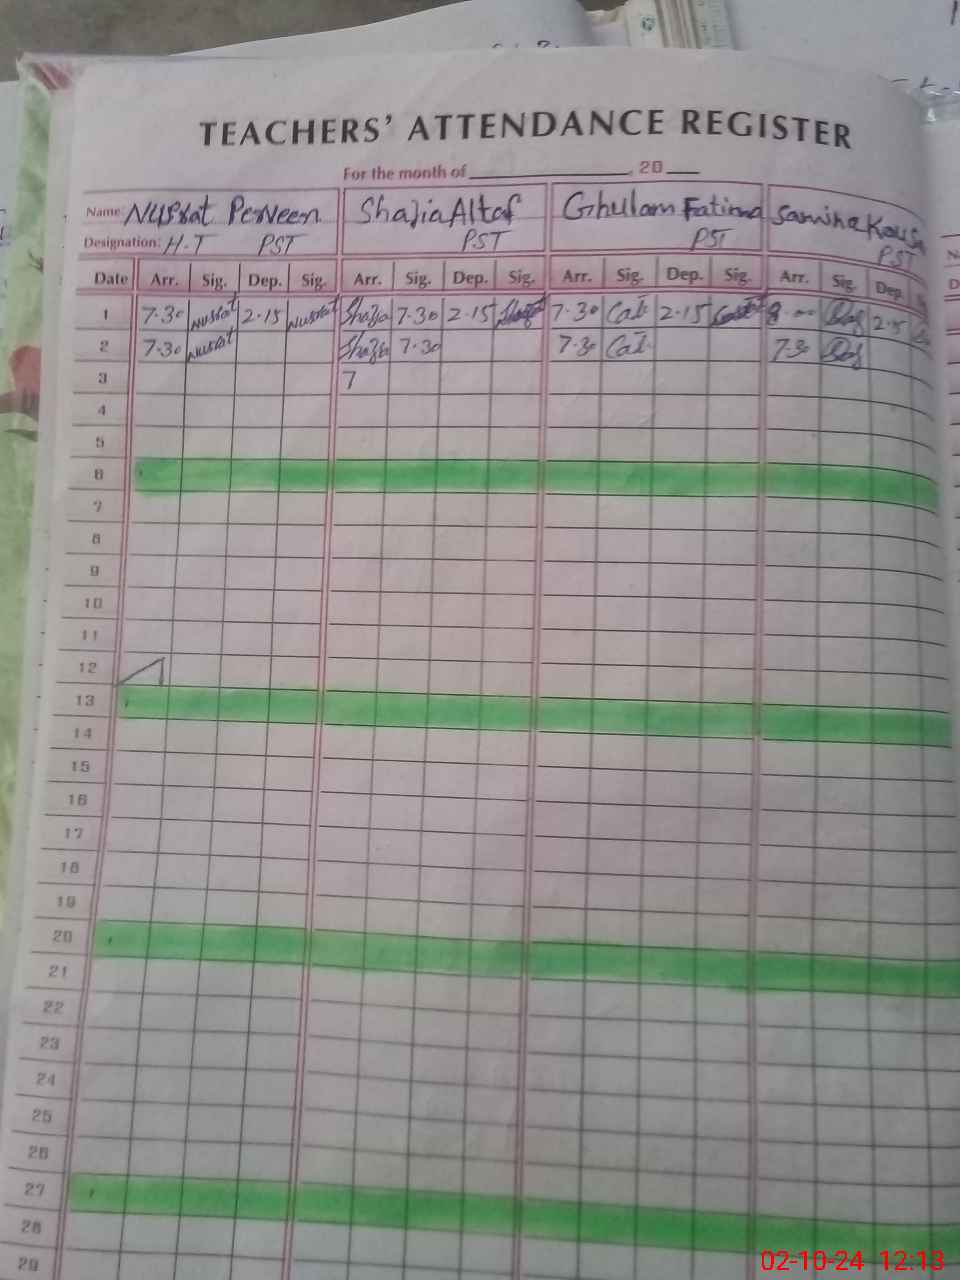 TEACHERS' ATTENDANCE REGISTER
For the month of , 20
Name: Nusrat Perveen Shazia Altaf Ghulam Fatima Samina Kousar
Designation: H-T PST PST PST PST
Date Arr. Sig. Dep. Sig. Arr. Sig. Dep. Sig. Arr. Sig. Dep. Sig. Arr. Sig. Dep.
1 7-30 Nusrat 2-15 Nusrat Shazia 7-30 2-15 7-30 2-15 8-00 2-15
2 7-30 Nusrat Shazia 7-30 7-30 7-30
3 7
4
5
6
7
8
9
10
11
12
13
14
15
16
17
18
19
20
21
22
23
24
25
26
27
28
29
02-10-24 12:13